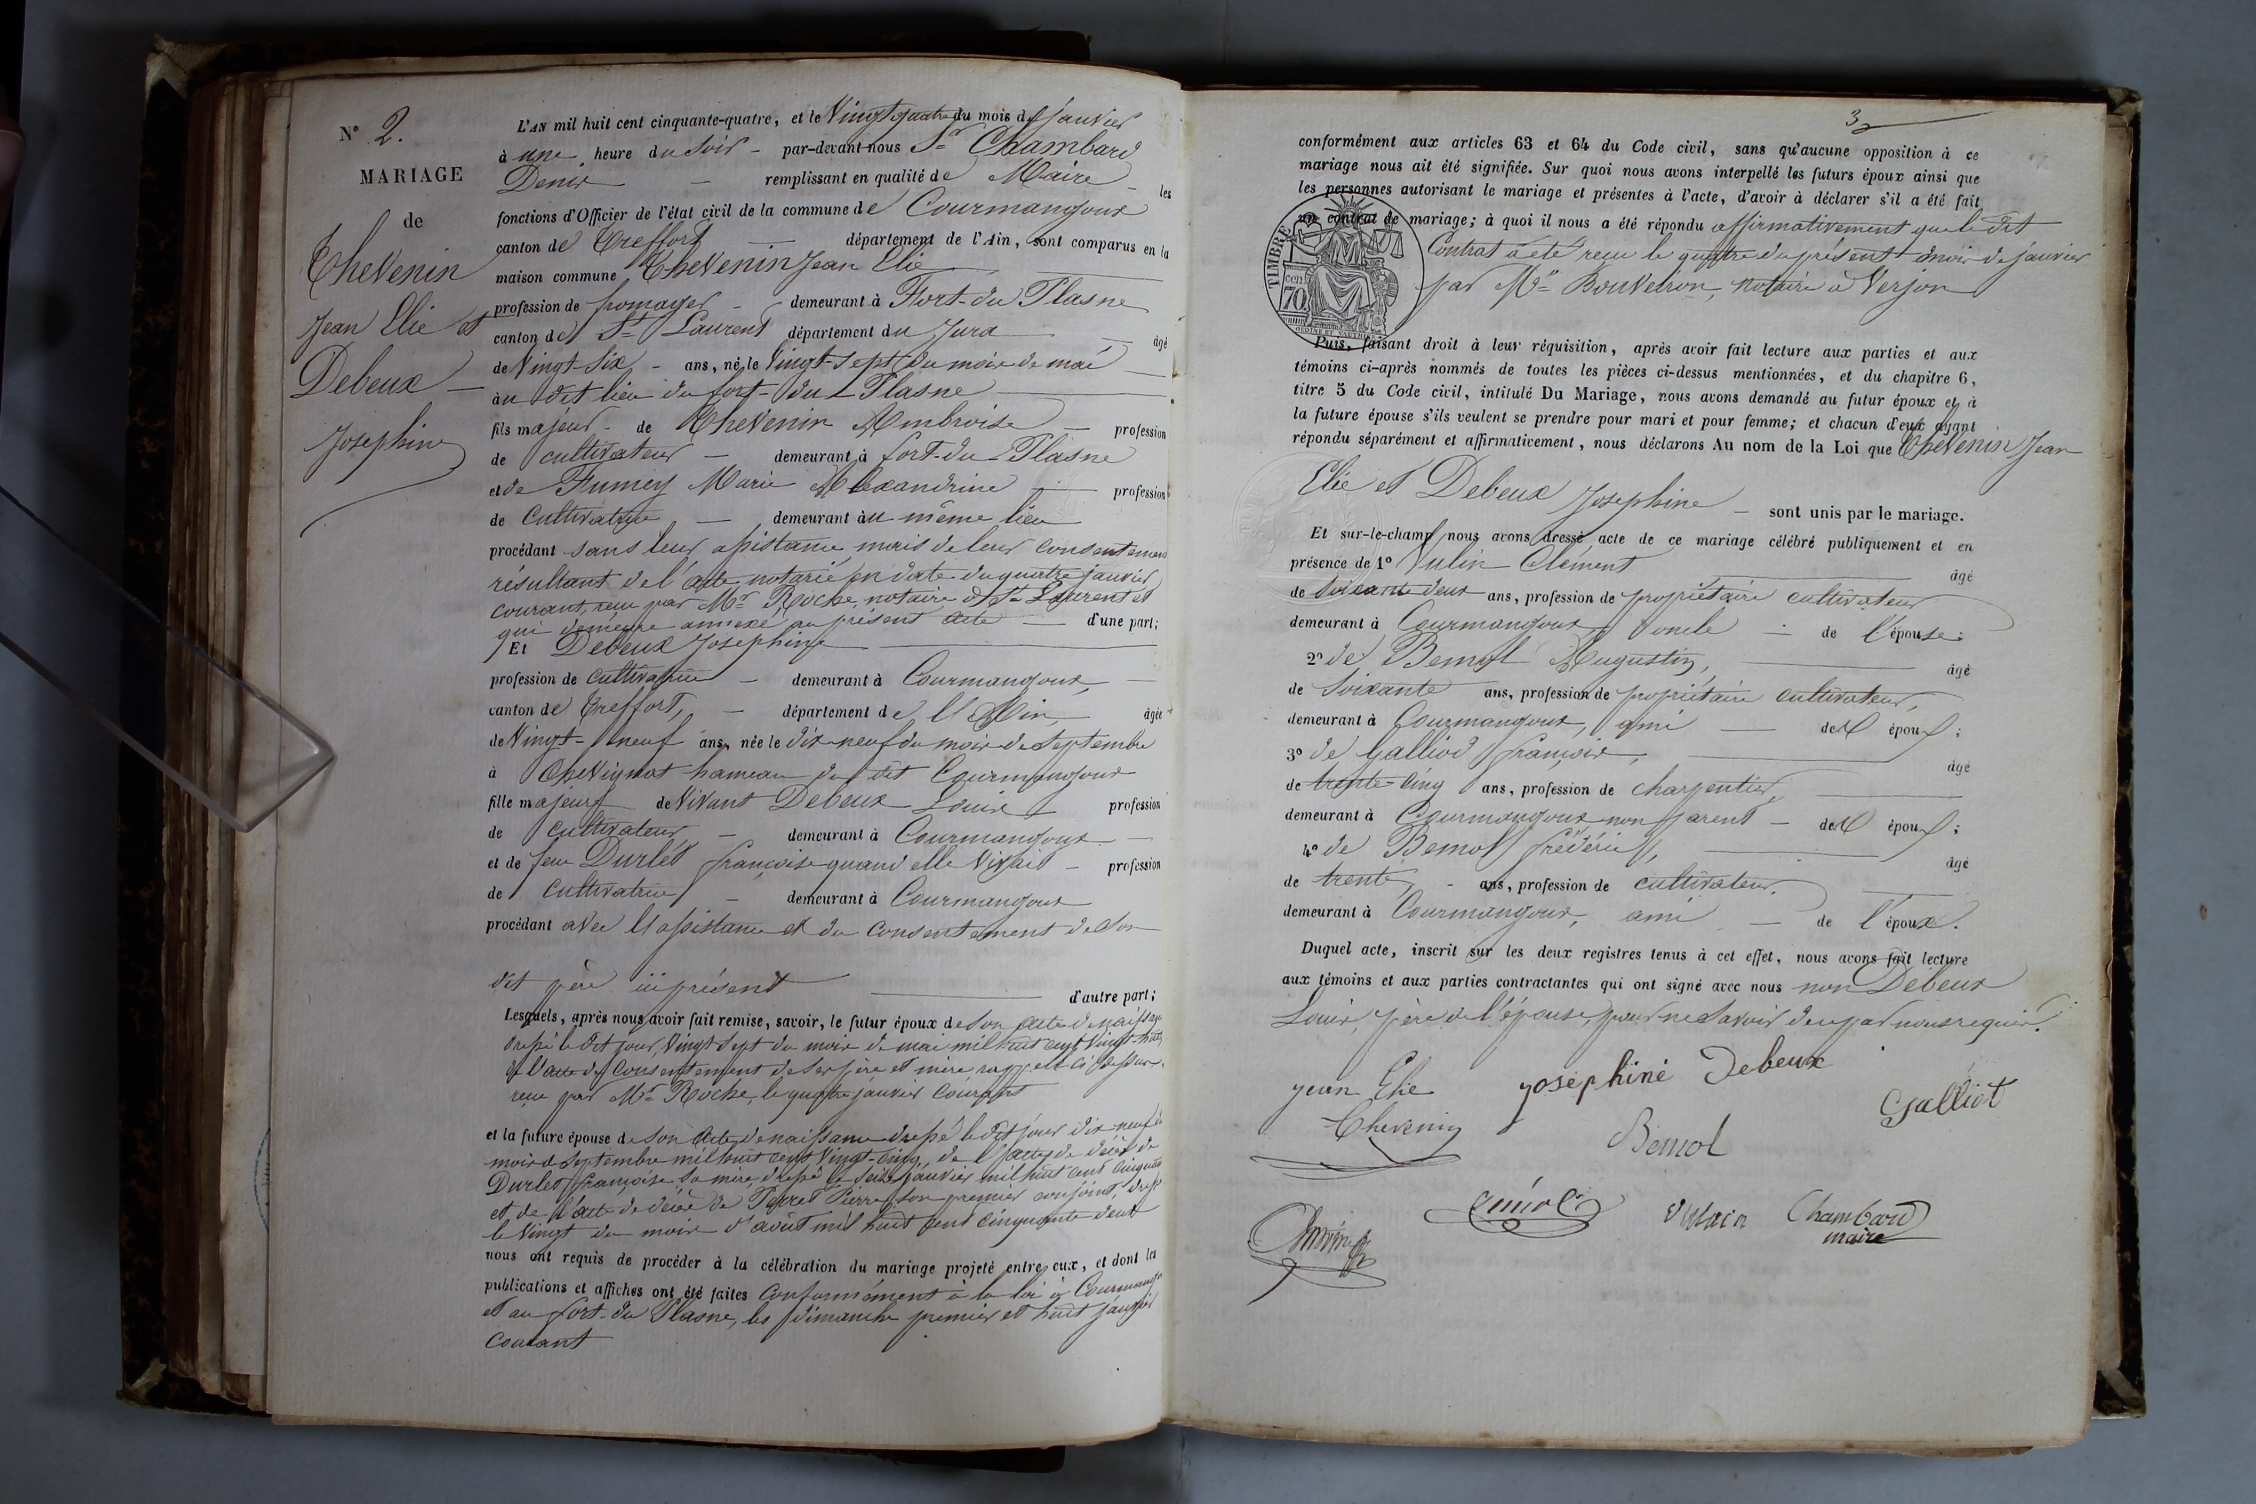 N° 2.
MARIAGE
de
Thevenin
Jean Elie et
Debeux
Josephine
L'AN mil huit cent cinquante-quatre, et le Vingt quatre du mois de janvier
à une heure du soir par-devant nous Sr Chambard
Denis remplissant en qualité de Maire les
fonctions d'Officier de l'état civil de la commune de Courmangoux
canton de Treffort département de l'Ain, sont comparus en la
maison commune Thevenin Jean Elie
profession de fromager demeurant à Fort-du Plasne
canton de St Laurent département du Jura âgé
de Vingt-six ans, né le Vingt-sept du mois de mai
au dit lieu du fort-du Plasne
fils majeur de Thevenin Ambroise profession
de cultivateur demeurant à fort-du Plasne
et de Fumey Marie Alexandrine profession
de Cultivatrice demeurant au même lieu
procédant sans leur assistance mais de leur consentement
résultant de l'acte notarié en date du quatre janvier
courant, reçu par Mr Roche, notaire à St Laurent et
qui demeure annexé au présent acte d'une part;
Et Debeux Josephine
profession de cultivatrice demeurant à Courmangoux,
canton de Treffort, département de l'Ain, âgée
de Vingt-neuf ans, née le dix-neuf du mois de septembre
à Chevignat hameau du dit Courmangoux
fille majeure de Vivant Debeux Louis profession
de cultivateur demeurant à Courmangoux
et de feue Durlet françoise quand elle vivait profession
de cultivatrice demeurant à Courmangoux
procédant avec l'assistance et du consentement de son
dit père ici présent d'autre part;
Lesquels, après nous avoir fait remise, savoir, le futur époux de son acte de naissance
dressé le dit jour, Vingt sept du mois de mai mil huit cent Vingt-huit
de l'acte de consentement de ses père et mère rappelé ci-dessus
reçu par Mr Roche, le quatre janvier courant
et la future épouse de son acte de naissance dressé le dit jour dix-neuf
mois de septembre mil huit cent Vingt-cinq, de l'acte de décès de
Durlet françoise sa mère, dressé le janvier mil huit cent cinquante
et de l'acte de décès de Pierre son premier conjoint, dressé
le Vingt du mois d'août mil huit cent cinquante deux
nous ont requis de procéder à la célébration du mariage projeté entre eux, et dont les
publications et affiches ont été faites Conformément à la loi à Courmangoux
et au fort-du Plasne, les dimanche premier et huit janvier
courant
3
conformément aux articles 63 et 64 du Code civil, sans qu'aucune opposition à ce
mariage nous ait été signifiée. Sur quoi nous avons interpellé les futurs époux ainsi que
les personnes autorisant le mariage et présentes à l'acte, d'avoir à déclarer s'il a été fait
un contrat de mariage; à quoi il nous a été répondu affirmativement que le dit
Contrat a été reçu le quatre du présent mois de janvier
par Me Bouveiron, notaire à Verjon
TIMBRE
70
Puis, faisant droit à leur réquisition, après avoir fait lecture aux parties et aux
témoins ci-après nommés de toutes les pièces ci-dessus mentionnées, et du chapitre 6,
titre 5 du Code civil, intitulé Du Mariage, nous avons demandé au futur époux et à
la future épouse s'ils veulent se prendre pour mari et pour femme; et chacun d'eux ayant
répondu séparément et affirmativement, nous déclarons Au nom de la Loi que Thevenin Jean
Elie et Debeux Josephine sont unis par le mariage.
Et sur-le-champ nous avons dressé acte de ce mariage célébré publiquement et en
présence de 1° Vulin Clément âgé
de soixante deux ans, profession de propriétaire cultivateur
demeurant à Courmangoux oncle de l'épouse;
2° de Bemol Augustin, âgé
de soixante ans, profession de propriétaire cultivateur,
demeurant à Courmangoux, ami des époux;
3° de Galliod françois, âgé
de trente-cinq ans, profession de charpentier,
demeurant à Courmangoux non parent des époux;
4° de Bemol frédéric, âgé
de trente, ans, profession de cultivateur.
demeurant à Courmangoux, ami de l'époux.
Duquel acte, inscrit sur les deux registres tenus à cet effet, nous avons fait lecture
aux témoins et aux parties contractantes qui ont signé avec nous non Debeux
Louis, père de l'épouse, pour ne savoir de ce par nous requis.
Jean Elie
Thevenin
Joséphine Debeux
Galliot
Bemol
Vulain
Chambard
maire